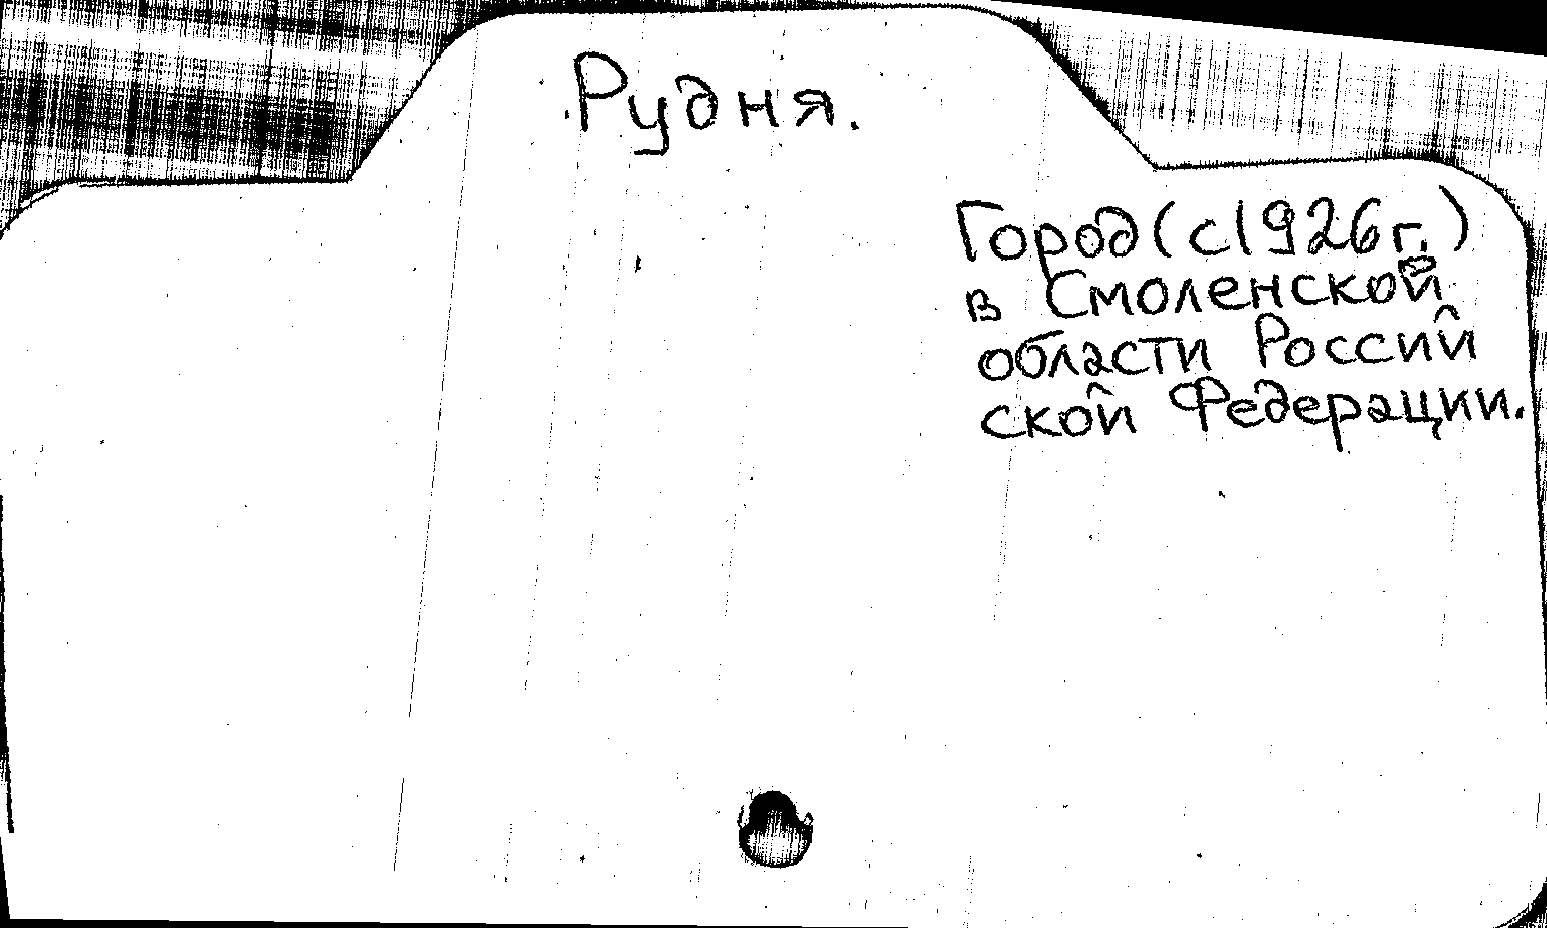 Рудня.
Город (с 1926 г.)
в Смоленской
области Россий
ской Федерации.